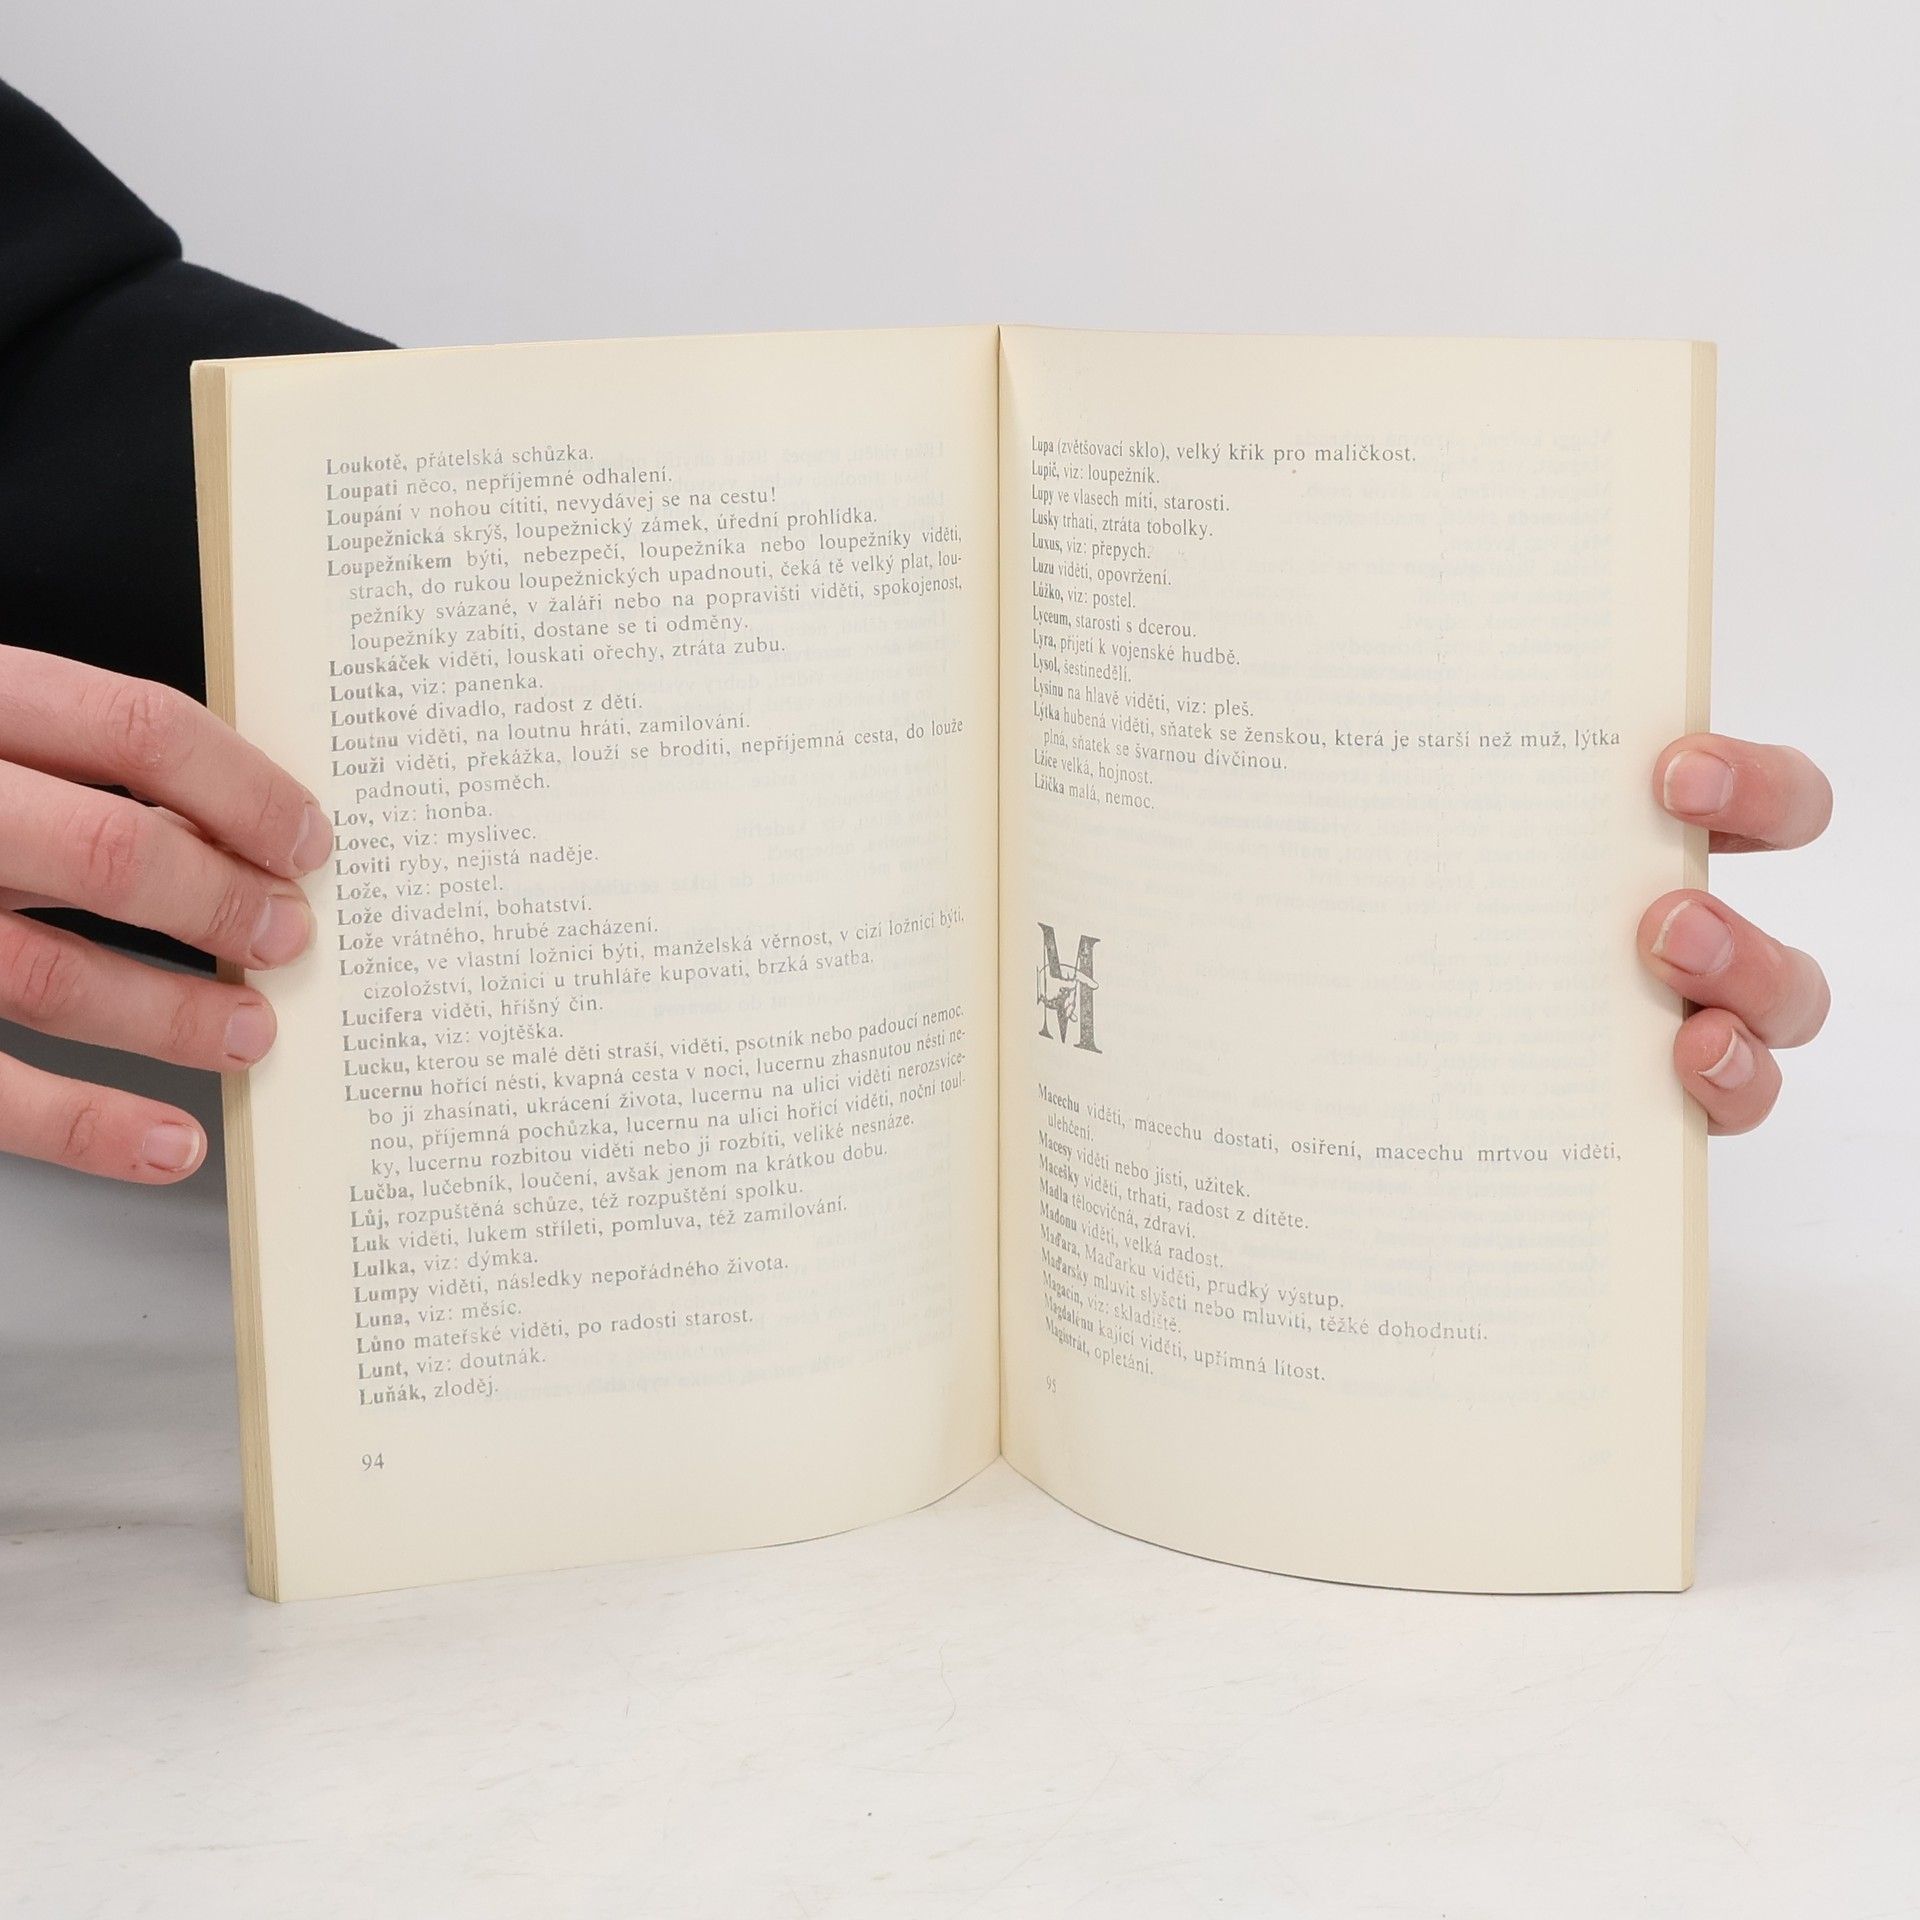 Loukotě, přátelská schůzka.
Loupati něco, nepříjemné odhalení.
Loupání v nohou cítiti, nevydávej se na cestu!
Loupežnická skrýš, loupežnický zámek, úřední prohlídka.
Loupežníkem býti, nebezpečí, loupežníka nebo loupežníky viděti,
strach, do rukou loupežnických upadnouti, čeká tě velký plat, lou-
pežníky svázané, v žaláři nebo na popravišti viděti, spokojenost,
loupežníky zabíti, dostane se ti odměny.
Louskáček viděti, louskati ořechy, ztráta zubu.
Loutka, viz: panenka.
Loutkové divadlo, radost z dětí.
Loutnu viděti, na loutnu hráti, zamilování.
Louži viděti, překážka, louží se broditi, nepříjemná cesta, do louže
padnouti, posměch.
Lov, viz: honba.
Lovec, viz: myslivec.
Loviti ryby, nejistá naděje.
Lože, viz: postel.
Lože divadelní, bohatství.
Lože vrátného, hrubé zacházení.
Ložnice, ve vlastní ložnici býti, manželská věrnost, v cizí ložnici býti,
cizoložství, ložnici u truhláře kupovati, brzká svatba.
Lucifera viděti, hříšný čin.
Lucinka, viz: vojtěška.
Lucku, kterou se malé děti straší, viděti, psotník nebo padoucí nemoc.
Lucernu hořící nésti, kvapná cesta v noci, lucernu zhasnutou nésti ne-
bo ji zhasínati, ukrácení života, lucernu na ulici viděti nerozsvíce-
nou, příjemná pochůzka, lucernu na ulici hořící viděti, noční toul-
ky, lucernu rozbitou viděti nebo ji rozbíti, veliké nesnáze.
Lučba, lučebník, loučení, avšak jenom na krátkou dobu.
Lůj, rozpuštěná schůze, též rozpuštění spolku.
Luk viděti, lukem stříleti, pomluva, též zamilování.
Lulka, viz: dýmka.
Lumpy viděti, následky nepořádného života.
Luna, viz: měsíc.
Lůno mateřské viděti, po radosti starost.
Lunt, viz: doutnák.
Luňák, zloděj.
94
Lupa (zvětšovací sklo), velký křik pro maličkost.
Lupič, viz: loupežník.
Lupy ve vlasech míti, starosti.
Lusky trhati, ztráta tobolky.
Luxus, viz: přepych.
Luzu viděti, opovržení.
Lůžko, viz: postel.
Lyceum, starosti s dcerou.
Lyra, přijetí k vojenské hudbě.
Lysol, šestinedělí.
Lysinu na hlavě viděti, viz: pleš.
Lýtka hubená viděti, sňatek se ženskou, která je starší než muž, lýtka
plná, sňatek se švarnou dívčinou.
Lžíce velká, hojnost.
Lžička malá, nemoc.
M
Macechu viděti, macechu dostati, osiření, macechu mrtvou viděti,
ulehčení.
Macesy viděti nebo jísti, užitek.
Macešky viděti, trhati, radost z dítěte.
Madla tělocvičná, zdraví.
Madonu viděti, velká radost.
Maďara, Maďarku viděti, prudký výstup.
Maďarsky mluvit slyšeti nebo mluviti, těžké dohodnutí.
Magacin, viz: skladiště.
Magdalénu kající viděti, upřímná lítost.
Magistrát, opletání.
95